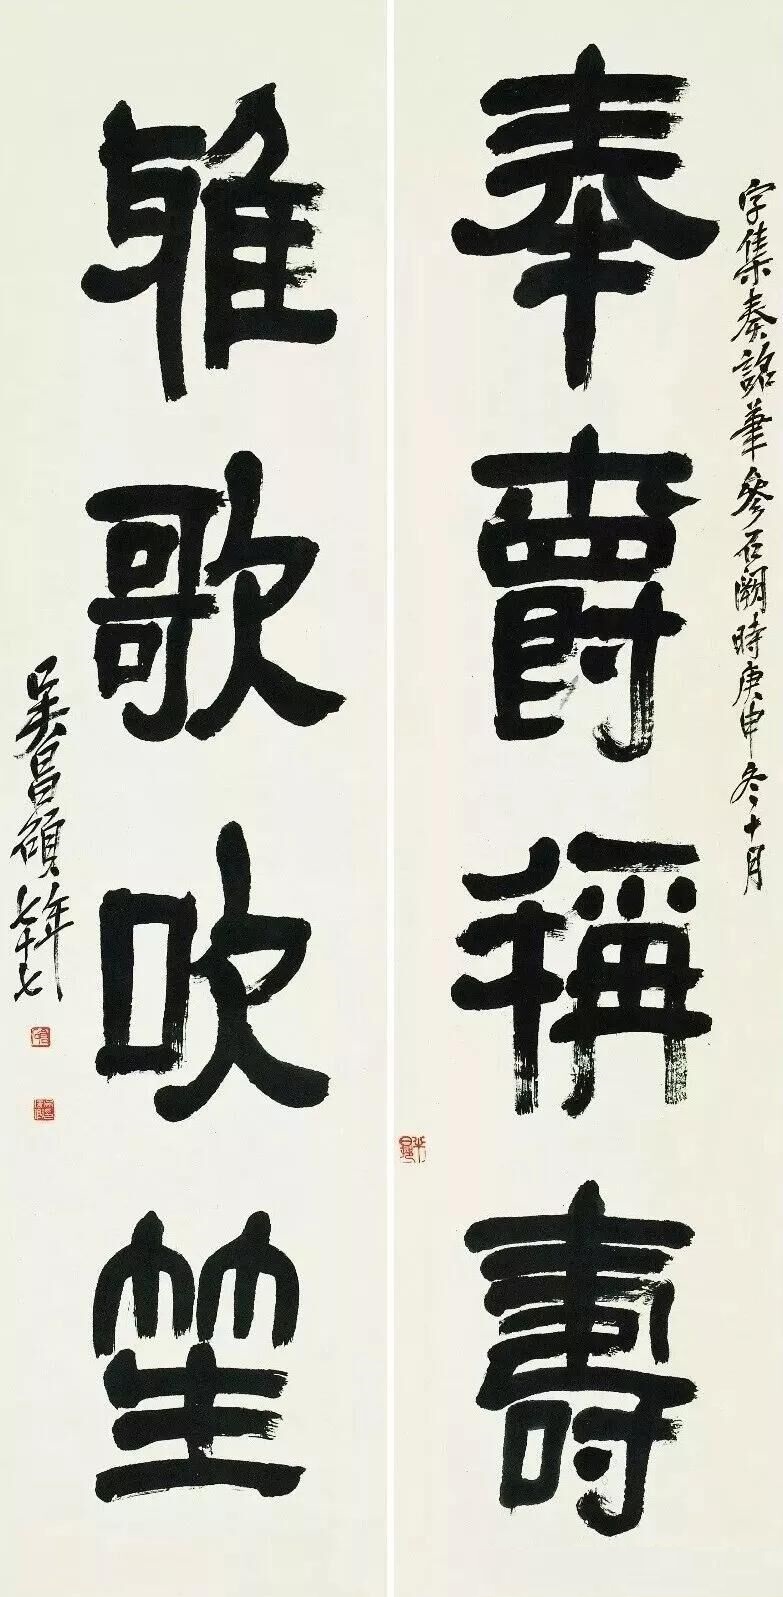 字集奏詔筆參石闕時庚申冬十月
奉爵稱壽
雅歌吹笙
吳昌碩年七十七